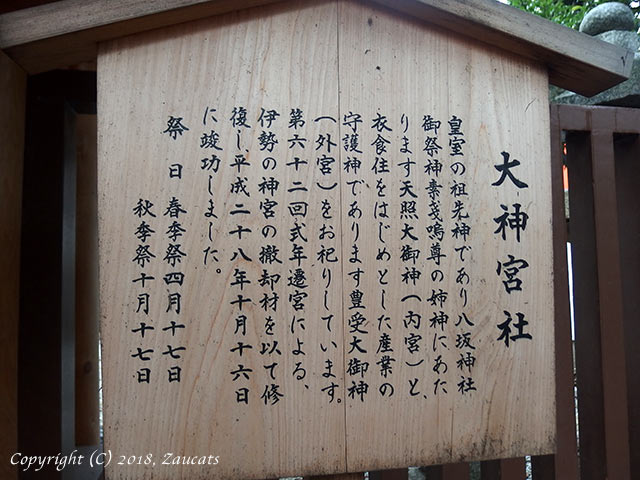 大神宮社
皇室の祖先神であり八坂神社
御祭神素戔嗚尊の姉神にあた
ります天照大御神(内宮)と、
衣食住をはじめとした産業の
守護神であります豊受大御神
(外宮)をお祀りしています。
第六十二回式年遷宮による、
伊勢の神宮の撤却材を以て修
復し、平成二十八年十月十六日
に竣功しました。
祭日 春季祭四月十七日
秋季祭十月十七日
Copyright (C) 2018, Zaucats